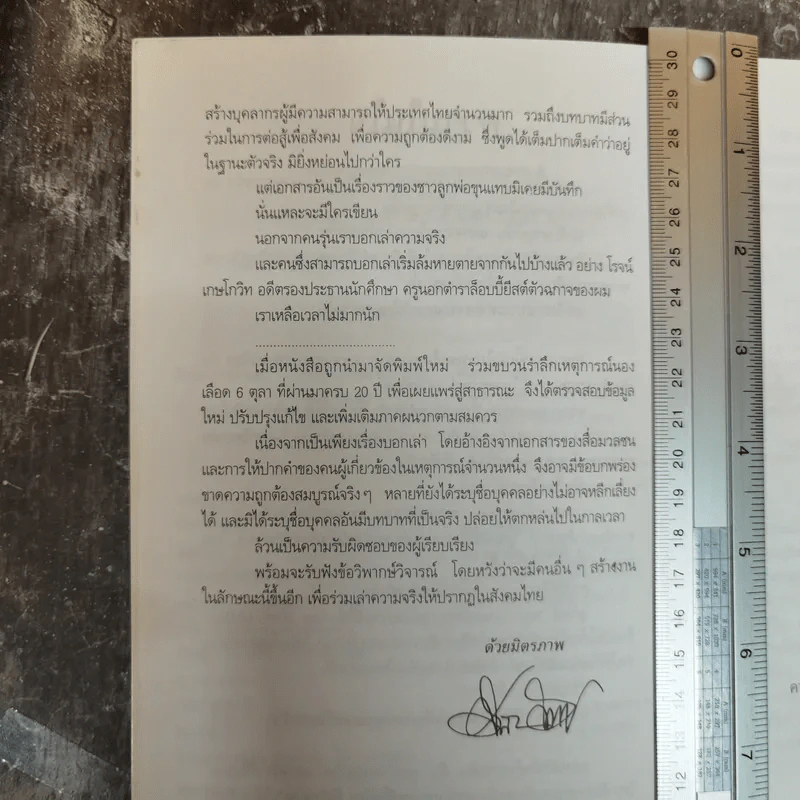 สร้างบุคลากรผู้มีความสามารถให้ประเทศไทยจำนวนมาก รวมถึงบทบาทมีส่วน
ร่วมในการต่อสู้เพื่อสังคม เพื่อความถูกต้องดีงาม ซึ่งพูดได้เต็มปากเต็มคำว่าอยู่
ในฐานะตัวจริง มิยิ่งหย่อนไปกว่าใคร
แต่เอกสารอันเป็นเรื่องราวของชาวลูกพ่อขุนแทบมิเคยมีบันทึก
นั่นแหละจะมีใครเขียน
นอกจากคนรุ่นเราบอกเล่าความจริง
และคนซึ่งสามารถบอกเล่าเริ่มล้มหายตายจากกันไปบ้างแล้ว อย่าง โรจน์
เกษโกวิท อดีตรองประธานนักศึกษา ครูนอกตำราล็อบบี้ยีสต์ตัวฉกาจของผม
เราเหลือเวลาไม่มากนัก
........................................
เมื่อหนังสือถูกนำมาจัดพิมพ์ใหม่ ร่วมขบวนรำลึกเหตุการณ์นอง
เลือด 6 ตุลา ที่ผ่านมาครบ 20 ปี เพื่อเผยแพร่สู่สาธารณะ จึงได้ตรวจสอบข้อมูล
ใหม่ ปรับปรุงแก้ไข และเพิ่มเติมภาคผนวกตามสมควร
เนื่องจากเป็นเพียงเรื่องบอกเล่า โดยอ้างอิงจากเอกสารของสื่อมวลชน
และการให้ปากคำของคนผู้เกี่ยวข้องในเหตุการณ์จำนวนหนึ่ง จึงอาจมีข้อบกพร่อง
ขาดความถูกต้องสมบูรณ์จริง ๆ หลายที่ยังได้ระบุชื่อบุคคลอย่างไม่อาจหลีกเลี่ยง
ได้ และมิได้ระบุชื่อบุคคลอันมีบทบาทที่เป็นจริง ปล่อยให้ตกหล่นไปในกาลเวลา
ล้วนเป็นความรับผิดชอบของผู้เรียบเรียง
พร้อมจะรับฟังข้อวิพากษ์วิจารณ์ โดยหวังว่าจะมีคนอื่น ๆ สร้างงาน
ในลักษณะนี้ขึ้นอีก เพื่อร่วมเล่าความจริงให้ปรากฏในสังคมไทย
ด้วยมิตรภาพ
30 29 28 27 26 25 24 23 22 21 20 19 18 17 16 15 14 13 12
0 1 2 3 4 5 6 7